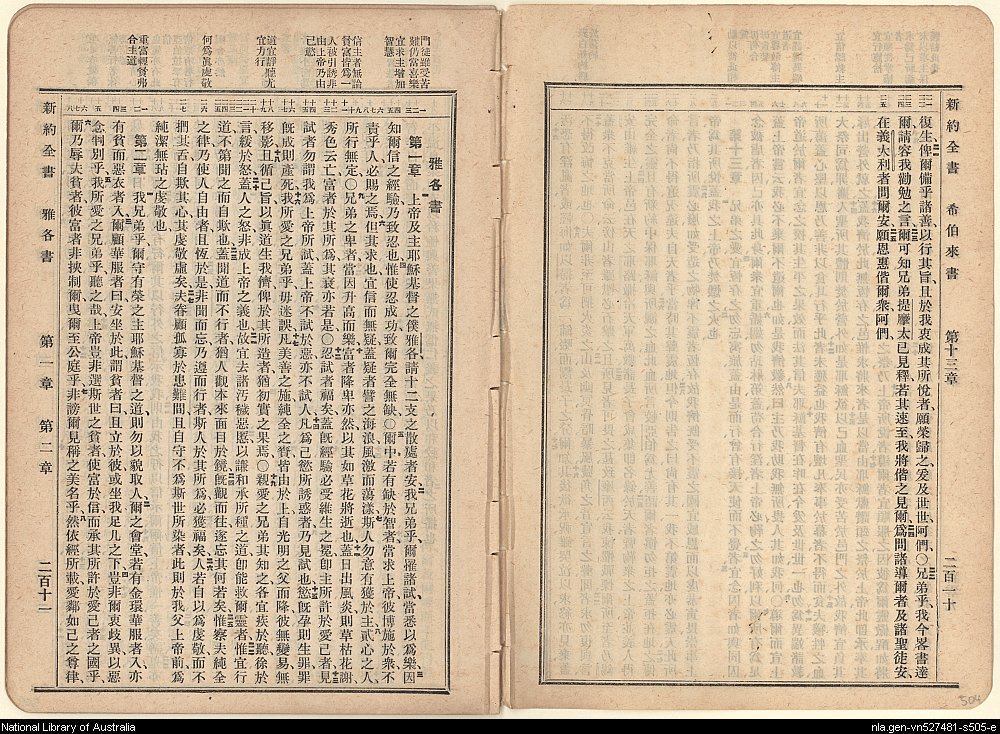 新約全書 希伯來書 第十三章 二百一十
復生、俾爾備乎諸善、以行其旨、且於我衷成其所悅者、願榮歸之、爰及世世、阿們、○兄弟乎、我今畧書達
爾、請容我勸勉之言、爾可知兄弟提摩太已見釋、若其速至、我將偕之見爾、爲問諸導爾者、及諸聖徒安、
在義大利者問爾安、願恩惠偕爾衆、阿們、
門徒雖受苦
難仍當喜樂
宜求主增加
智慧
信主者無論
貧富皆爲一
人被引誘非
由上帝乃由
己慾
道宜靜聽尤
宜方行
何爲眞虔敬
重富輕貧弗
合主道
雅各書
第一章 上帝及主耶穌基督之僕雅各、請十二支之散處者安、我兄弟乎、爾罹諸試、當悉以爲樂、因
知爾信之經驗、乃致忍也、惟使忍成功、致爾完全無缺、○爾中若有缺於智者、當求上帝、彼博施於衆、不
責乎人、必賜之焉、但其求也、宜信而無疑、蓋疑者譬之海浪、風激而蕩漾、斯人勿意有獲於主、貳心之人、
所行無定、○兄弟之卑者、當因升高而樂、富者降卑亦然、以其如草花將逝也、蓋日出風炎、則草枯花謝、
秀色云亡、富者於其所爲、其衰亦若是、○忍試者福矣、蓋旣經驗、必受維生之冕、卽主所許於愛己者、見
試者勿謂我爲上帝所試、蓋上帝不試於惡、亦不試人、凡人爲己慾所誘惑者、乃見試也、慾旣孕則生罪、罪
旣成則產死、我所愛之兄弟乎、毋迷誤、凡美善之施、純全之賚、皆由於上、自光明之父而降、彼無變易、無
移影、且循己旨、以眞道生我儕、俾於其所造者、猶初實之果焉、○親愛之兄弟、其知之、各宜疾於聽、徐於
言、緩於怒、蓋人之怒、非成上帝之義也、故宜去諸汚穢惡慝、以謙和承所種之道、卽能救爾靈者、惟宜行
道、不第聞之而自欺也、蓋聞道而不行者、猶人觀本來面目於鏡、旣觀而往、遂忘其何若矣、惟察夫純全
之律、乃使人自由者、且恆於是、非聞而忘、乃遵而行者、斯人於其所爲必獲福矣、人若自以爲虔敬、而不
捫其舌、自欺其心、其虔敬虛矣、夫眷顧孤寡於患難間、且自守不爲斯世所染者、此則於我父上帝前、爲
純潔無玷之虔敬也、
第二章 我兄弟乎、爾守有榮之主耶穌基督之道、則勿以貌取人、爾之會堂、若有金環華服者入、亦
有貧而惡衣者入、爾顧華服者曰、安坐於此、謂貧者曰、且立於彼、或坐我足几之下、豈非爾衷歧異、以惡
念判別乎、我所愛之兄弟乎、聽之哉、上帝豈非選斯世之貧者、使富於信、而承其所許於愛己者之國乎、
爾乃辱夫貧者、彼富者非挾制爾、曳爾至公庭乎、非謗爾見稱之美名乎、然依經所載、愛鄰如己之尊律、
新約全書 雅各書 第一章 第二章 二百十一
504
National Library of Australia
nla.gen-vn527481-s505-e